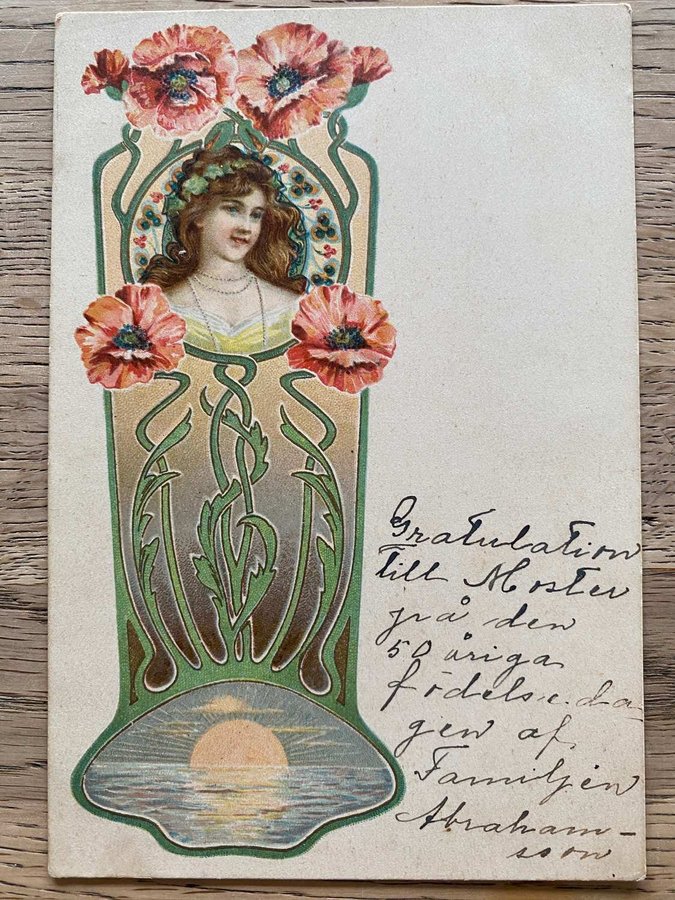 Gratulation
till Moster
på den
50 åriga
födelseda-
gen af
Familjen
Abraham-
sson